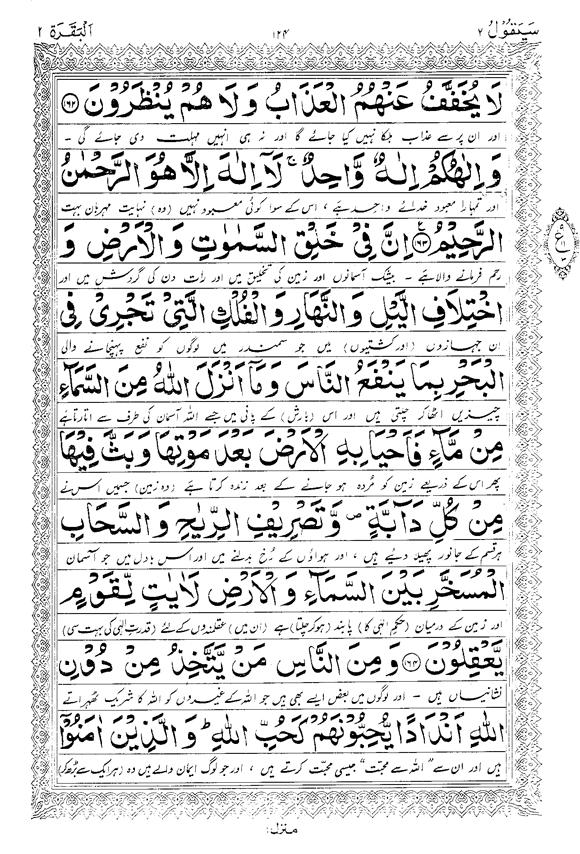 سَيَقُولُ ٢ ١٢٤ اَلْبَقَرَة ٢
لَا يُخَفَّفُ عَنْهُمُ الْعَذَابُ وَ لَا هُمْ يُنْظَرُوْنَ ﴿۱۶۲﴾
اور ان پر سے عذاب ہلکا نہیں کیا جائے گا اور نہ ہی انہیں مہلت دی جائے گی ۔
وَ اِلٰهُكُمْ اِلٰهٌ وَّاحِدٌ ۚ لَاۤ اِلٰهَ اِلَّا هُوَ الرَّحْمٰنُ
اور تمہارا معبود خدائے واحد ہے ، اس کے سوا کوئی معبود نہیں (وہ) نہایت مہربان بہت
الرَّحِيْمُ ﴿۱۶۳﴾ اِنَّ فِيْ خَلْقِ السَّمٰوٰتِ وَ الْاَرْضِ وَ
رحم فرمانے والا ہے ۔ بیشک آسمانوں اور زمین کی تخلیق میں اور رات دن کی گردش میں اور
اخْتِلَافِ الَّيْلِ وَ النَّهَارِ وَ الْفُلْكِ الَّتِيْ تَجْرِيْ فِي
ان جہازوں (اور کشتیوں) میں جو سمندر میں لوگوں کو نفع پہنچانے والی
الْبَحْرِ بِمَا يَنْفَعُ النَّاسَ وَ مَاۤ اَنْزَلَ اللّٰهُ مِنَ السَّمَآءِ
چیزیں اٹھا کر چلتی ہیں اور اس (بارش) کے پانی میں جسے اللہ آسمان کی طرف سے اتارتا ہے
مِنْ مَّآءٍ فَاَحْيَا بِهِ الْاَرْضَ بَعْدَ مَوْتِهَا وَ بَثَّ فِيْهَا
پھر اس کے ذریعے زمین کو مُردہ ہو جانے کے بعد زندہ کرتا ہے (وہ زمین) جس میں اس نے
مِنْ كُلِّ دَآبَّةٍ ۪ وَّ تَصْرِيْفِ الرِّيٰحِ وَ السَّحَابِ
ہر قسم کے جانور پھیلا دیئے ہیں ، اور ہواؤں کے رُخ بدلنے میں اور اس بادل میں جو آسمان
الْمُسَخَّرِ بَيْنَ السَّمَآءِ وَ الْاَرْضِ لَاٰيٰتٍ لِّقَوْمٍ
اور زمین کے درمیان (حکمِ الٰہی کا) پابند (ہو کر چلتا) ہے (ان میں) عقلمندوں کے لئے (قدرتِ الٰہی کی بہت سی)
يَّعْقِلُوْنَ ﴿۱۶۴﴾ وَ مِنَ النَّاسِ مَنْ يَّتَّخِذُ مِنْ دُوْنِ
نشانیاں ہیں ۔ اور لوگوں میں بعض ایسے بھی ہیں جو اللہ کے غیروں کو اللہ کا شریک ٹھہراتے
اللّٰهِ اَنْدَادًا يُّحِبُّوْنَهُمْ كَحُبِّ اللّٰهِ ؕ وَ الَّذِيْنَ اٰمَنُوْۤا
ہیں اور ان سے ”اللہ سے محبت“ جیسی محبت کرتے ہیں ، اور جو لوگ ایمان والے ہیں وہ (ہر ایک سے بڑھ کر)
منزل ۱